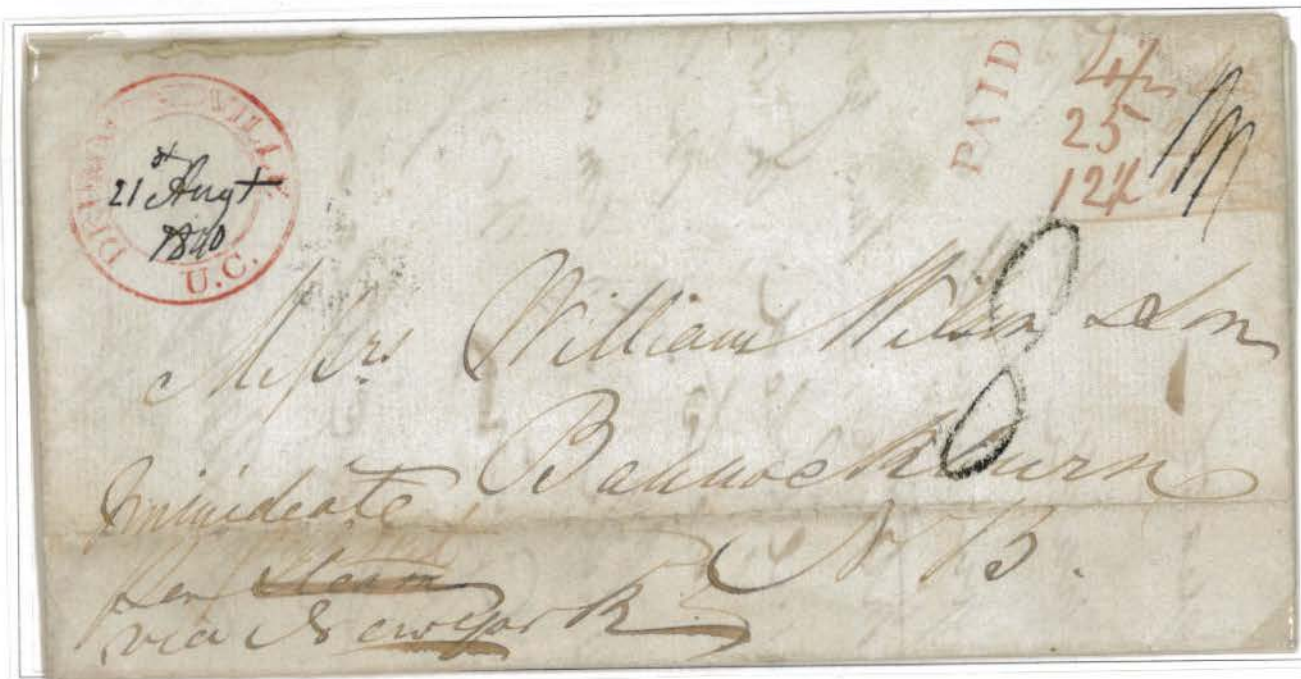 DRUMMONDVILLE
21st Augt
1840
U.C.
PAID
4½
25
12½
8
Messrs William Wilson & Son
Bannockburn
N B.
Immideate
Per Steam
via New York